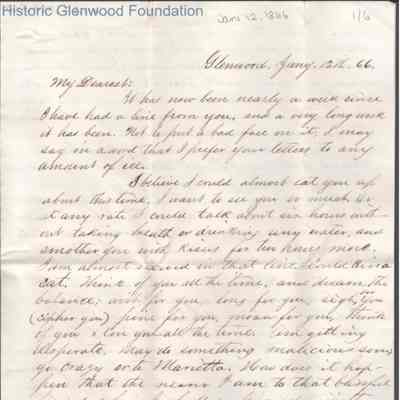 Historic Glenwood Foundation
Jan 12, 1866
1/6
Glenwood, Jany. 12th 66.
My Dearest:
It has now been nearly a week since
I have had a line from you, and a very long week
it has been. Not to put a bad face on it, I may
say in a word that I prefer your letters to any
amount of ill.
I believe I could almost eat you up
about this time. I want to see you so much.
at any rate I could talk about six hours with-
out taking breath or drinking any water, and
smother you with kisses for ten hours more.
I am almost starved in that line. Could kiss a
cat. Think of you all the time, and dream the
balance; and for you, long for you, sigh for you
(cipher you) pine for you, moan for you, think
of you & love you all the time. am getting
desperate. May do something malicious soon,
go crazy or to Marietta. How does it hap-
pen that the nearer I am to that blissful